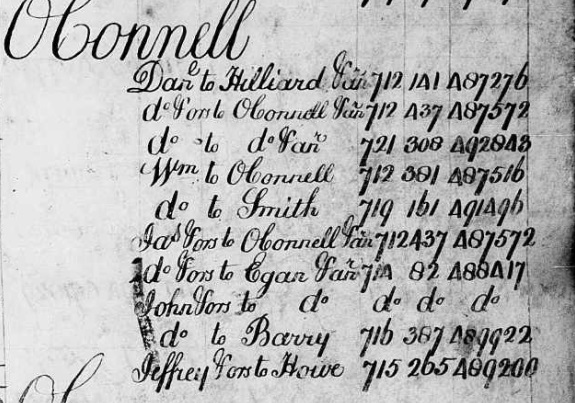 OConnell
Danl to Hilliard &anr 712 141 487276
do &ors to OConnell &anr 712 437 487572
do to do &anr 721 308 492843
Wm to OConnell 712 381 487516
do to Smith 719 161 491496
Jas &ors to OConnell &anr 712 437 487572
do &ors to Egan &anr 714 82 488417
John &ors to do do do do
do to Barry 716 387 489922
Jeffrey &ors to Howe 715 265 489200